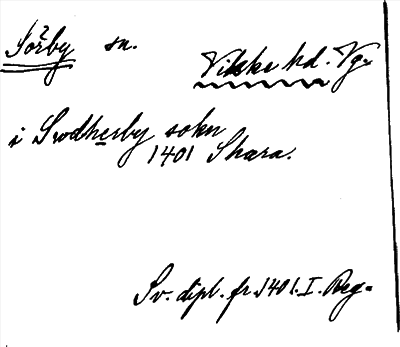 Sörby sn.
Vilske hd. Vg.
i Swdherby sokn
1401 Skara.
Sv. dipl. fr. 1401. I. Reg.